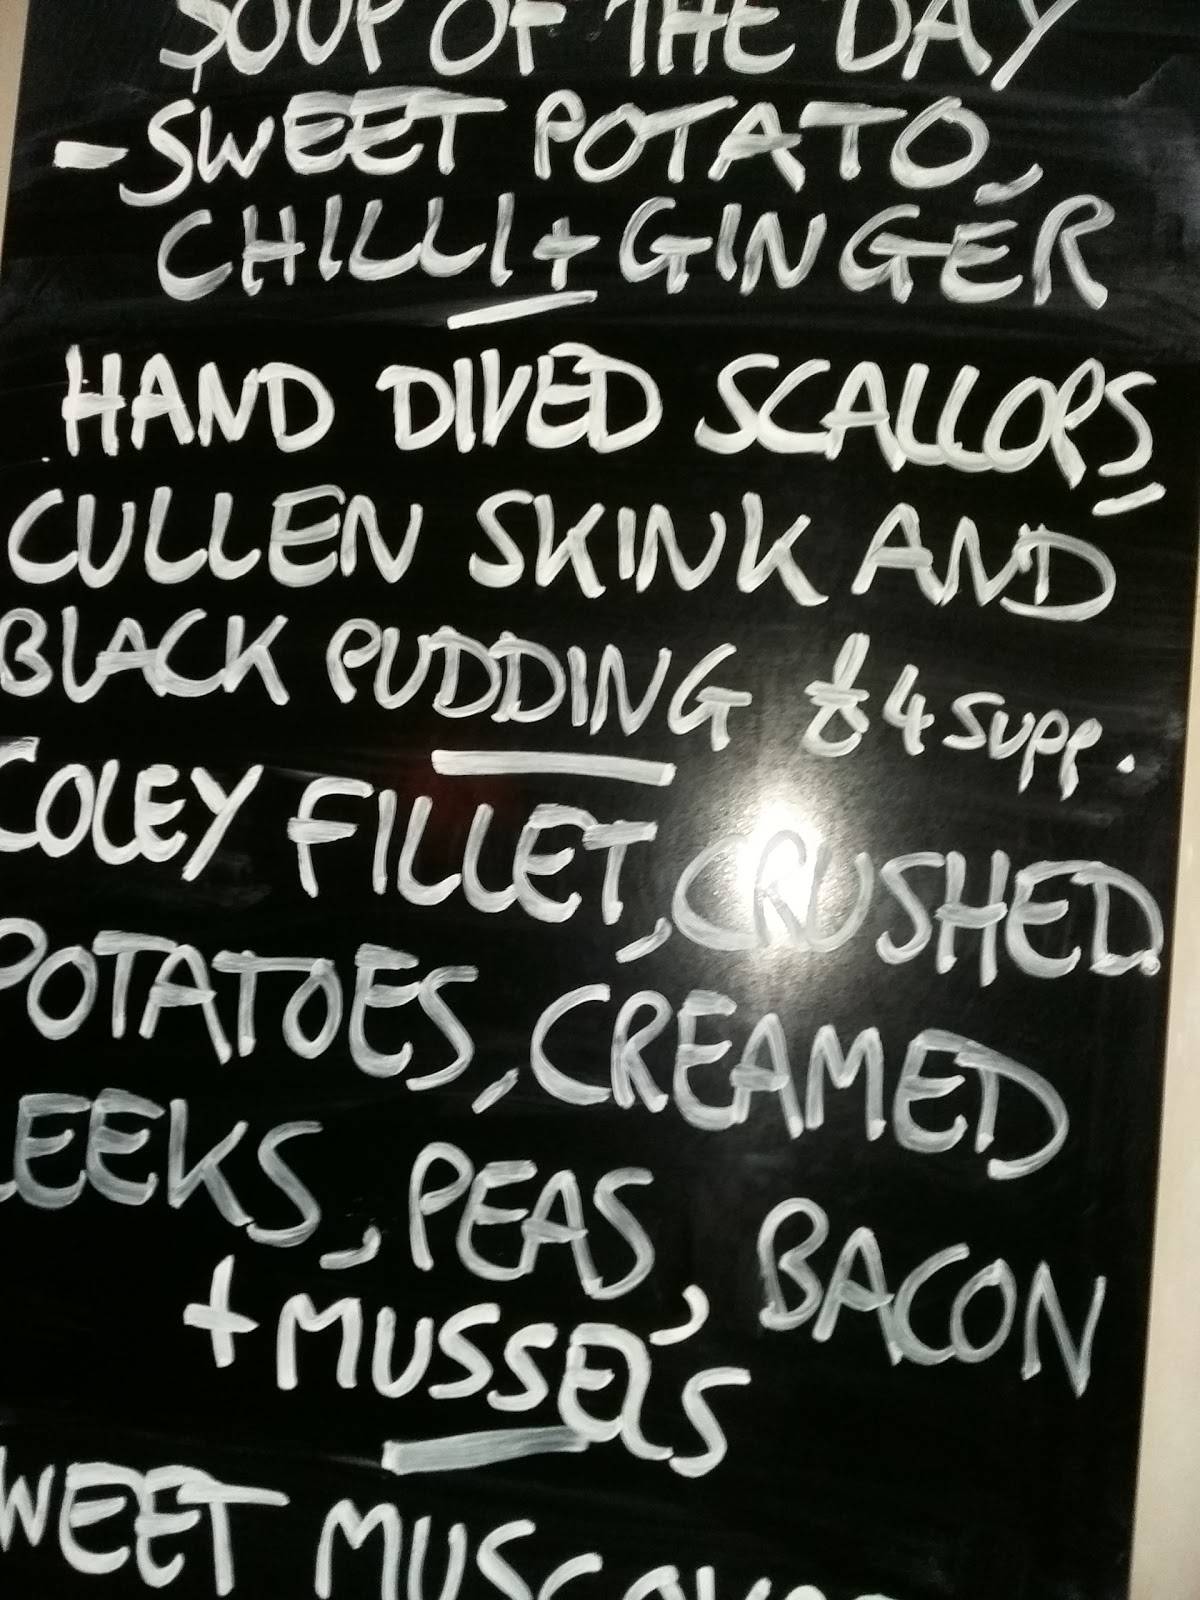 SOUP OF THE DAY
- SWEET POTATO,
CHILLI + GINGER
HAND DIVED SCALLOPS,
CULLEN SKINK AND
BLACK PUDDING £4 SUPP.
COLEY FILLET, CRUSHED
POTATOES, CREAMED
LEEKS, PEAS, BACON
+ MUSSELS
SWEET